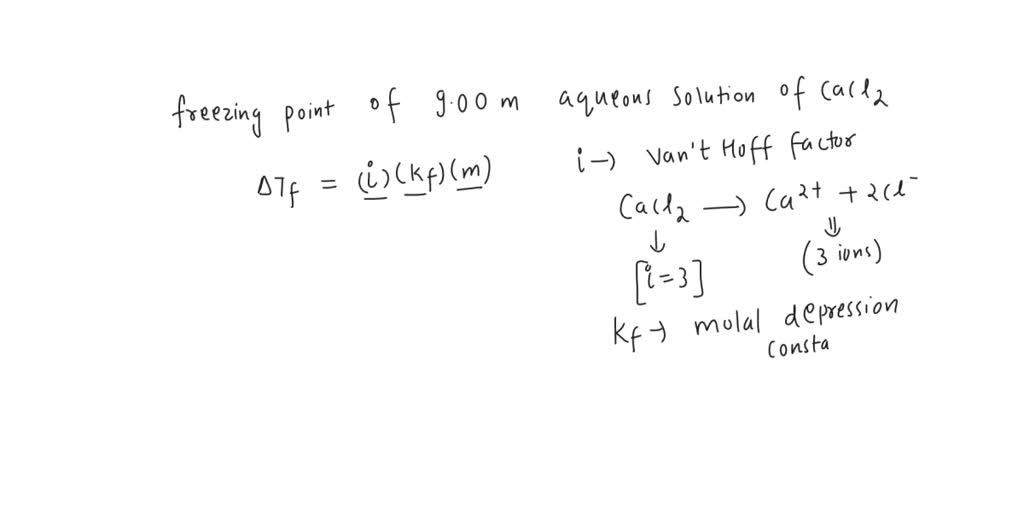 freezing point of 9.00 m aqueous solution of CaCl₂
ΔTf = (i)(kf)(m)
i → Van't Hoff factor
CaCl₂ → Ca²⁺ + 2Cl⁻
↓ ⇓
[i=3] (3 ions)
kf → molal depression
consta